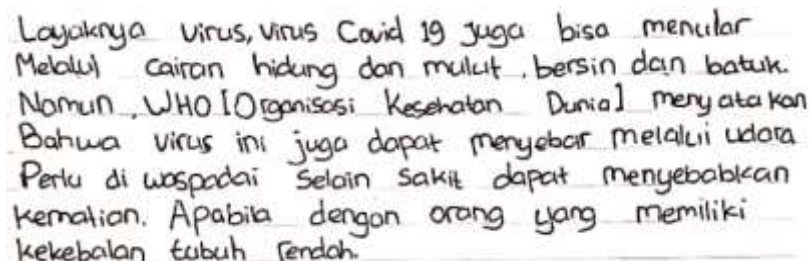 Layaknya virus, virus Covid 19 juga bisa menular
Melalui cairan hidung dan mulut, bersin dan batuk.
Namun, WHO [Organisasi Kesehatan Dunia] menyatakan
Bahwa virus ini juga dapat menyebar melalui udara
Perlu di waspadai selain sakit dapat menyebabkan
kematian. Apabila dengan orang yang memiliki
kekebalan tubuh rendah.